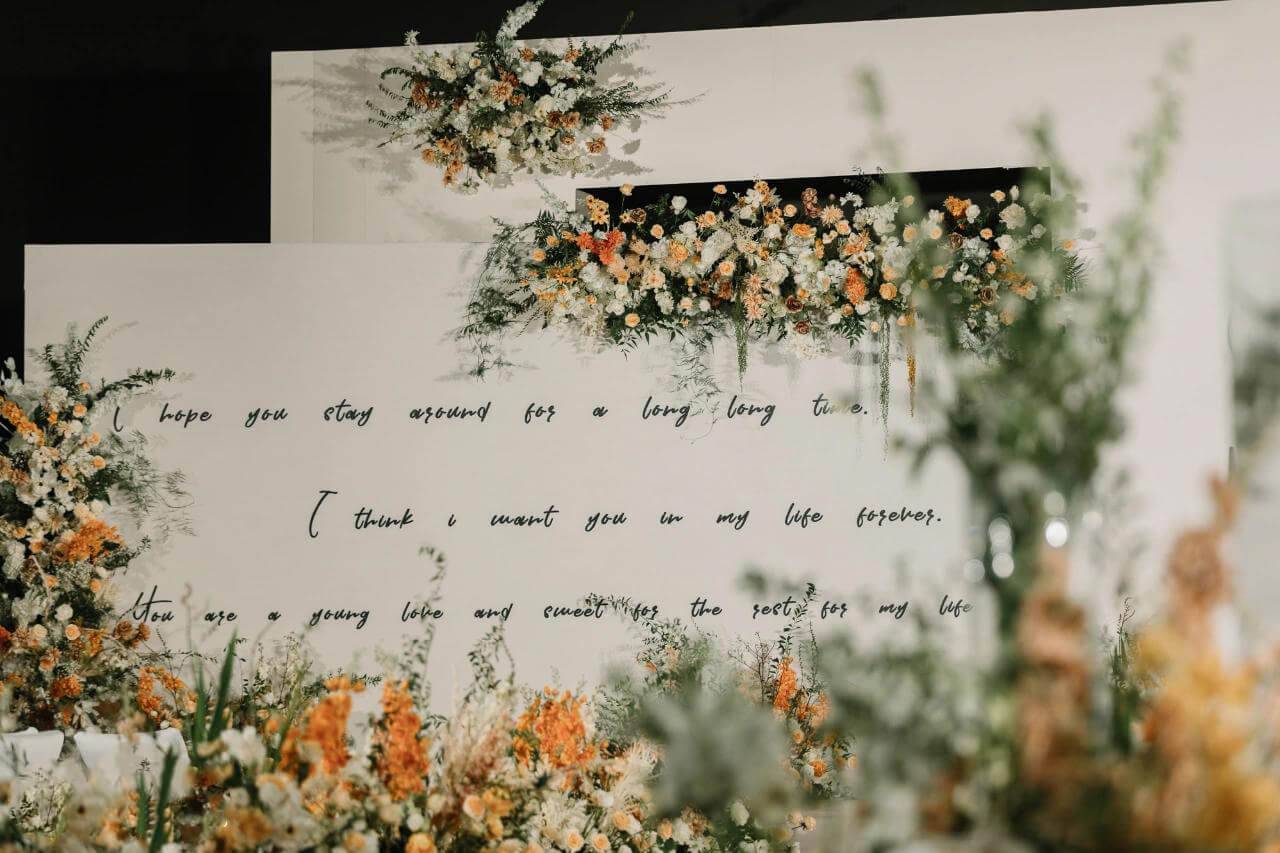 I hope you stay around for a long long time.
I think i want you in my life forever.
You are a young love and sweet for the rest for my life